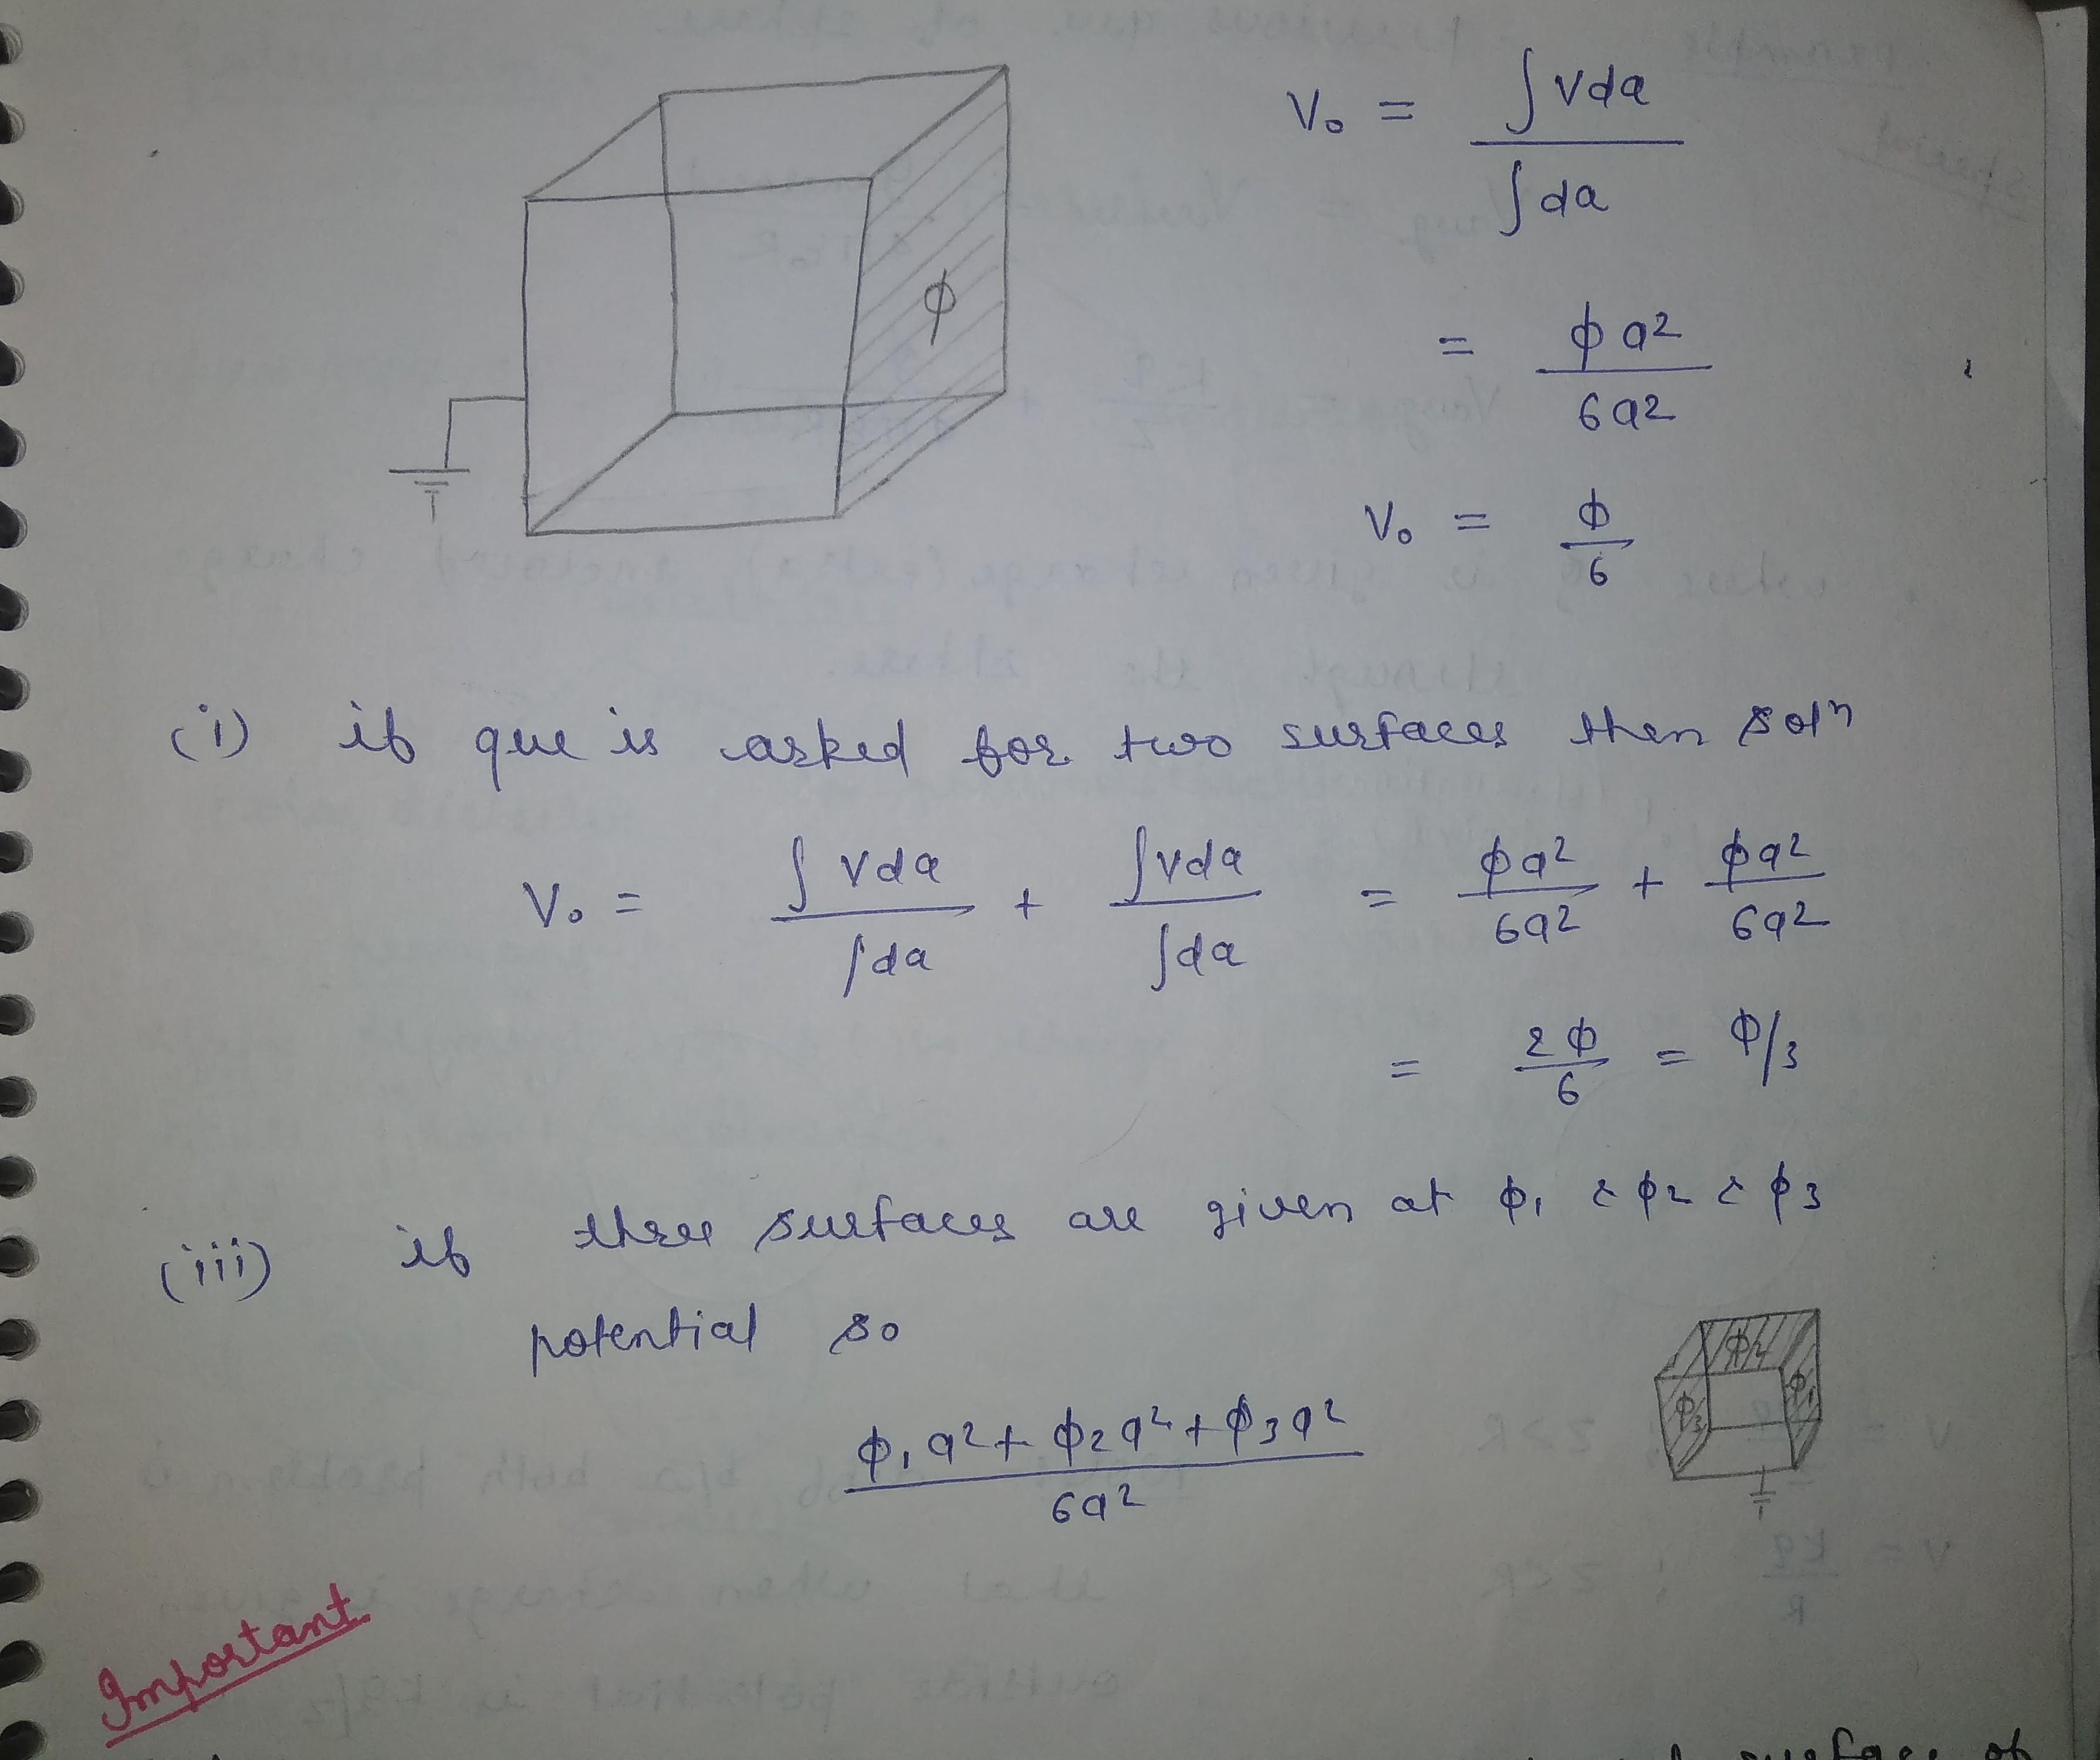 V₀ = ∫Vda / ∫da
= ϕa² / 6a²
V₀ = ϕ / 6
ϕ
(i) if que is asked for two surfaces then solⁿ
V₀ = ∫Vda / ∫da + ∫Vda / ∫da = ϕa² / 6a² + ϕa² / 6a²
= 2ϕ / 6 = ϕ/3
(iii) if three surfaces are given at ϕ₁ & ϕ₂ & ϕ₃
potential so
ϕ₁a² + ϕ₂a² + ϕ₃a² / 6a²
ϕ₁
ϕ₃
Important
surface of